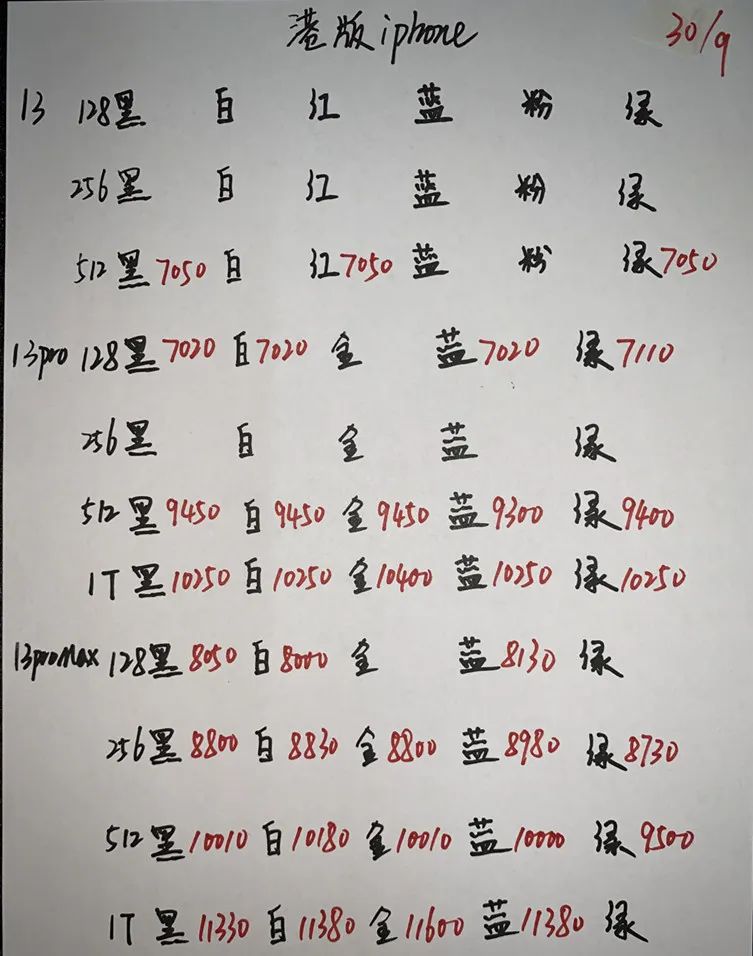 港版iphone 30/9
13 128黑 白 红 蓝 粉 绿
256黑 白 红 蓝 粉 绿
512黑7050 白 红7050 蓝 粉 绿7050
13pro 128黑7020 白7020 金 蓝7020 绿7110
256黑 白 金 蓝 绿
512黑9450 白9450 金9450 蓝9300 绿9400
1T黑10250 白10250 金10400 蓝10250 绿10250
13proMax 128黑8050 白8000 金 蓝8130 绿
256黑8800 白8830 金8800 蓝8980 绿8730
512黑10010 白10180 金10010 蓝10000 绿9500
1T黑11330 白11380 金11600 蓝11380 绿